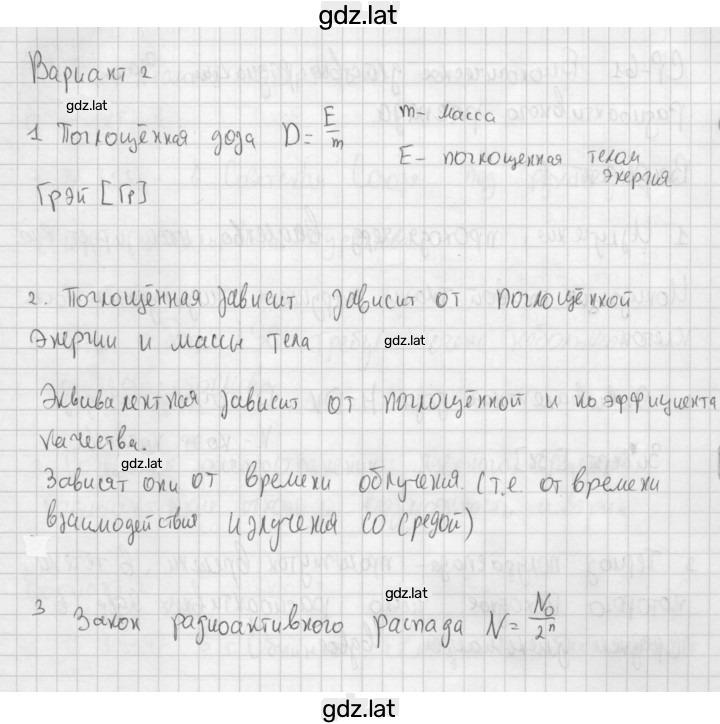 gdz.lat
Вариант 2
gdz.lat
1 Поглощённая доза D = E/m m - масса
E - поглощенная телом
энергия
Грэй [Гр]
2. Поглощённая зависит зависит от поглощённой
энергии и массы тела gdz.lat
Эквивалентная зависит от поглощённой и коэффициента
качества.
gdz.lat
Зависят они от времени облучения. (т.е от времени
взаимодействия излучения со средой)
gdz.lat
3 Закон радиоактивного распада N = N₀/2ⁿ
gdz.lat